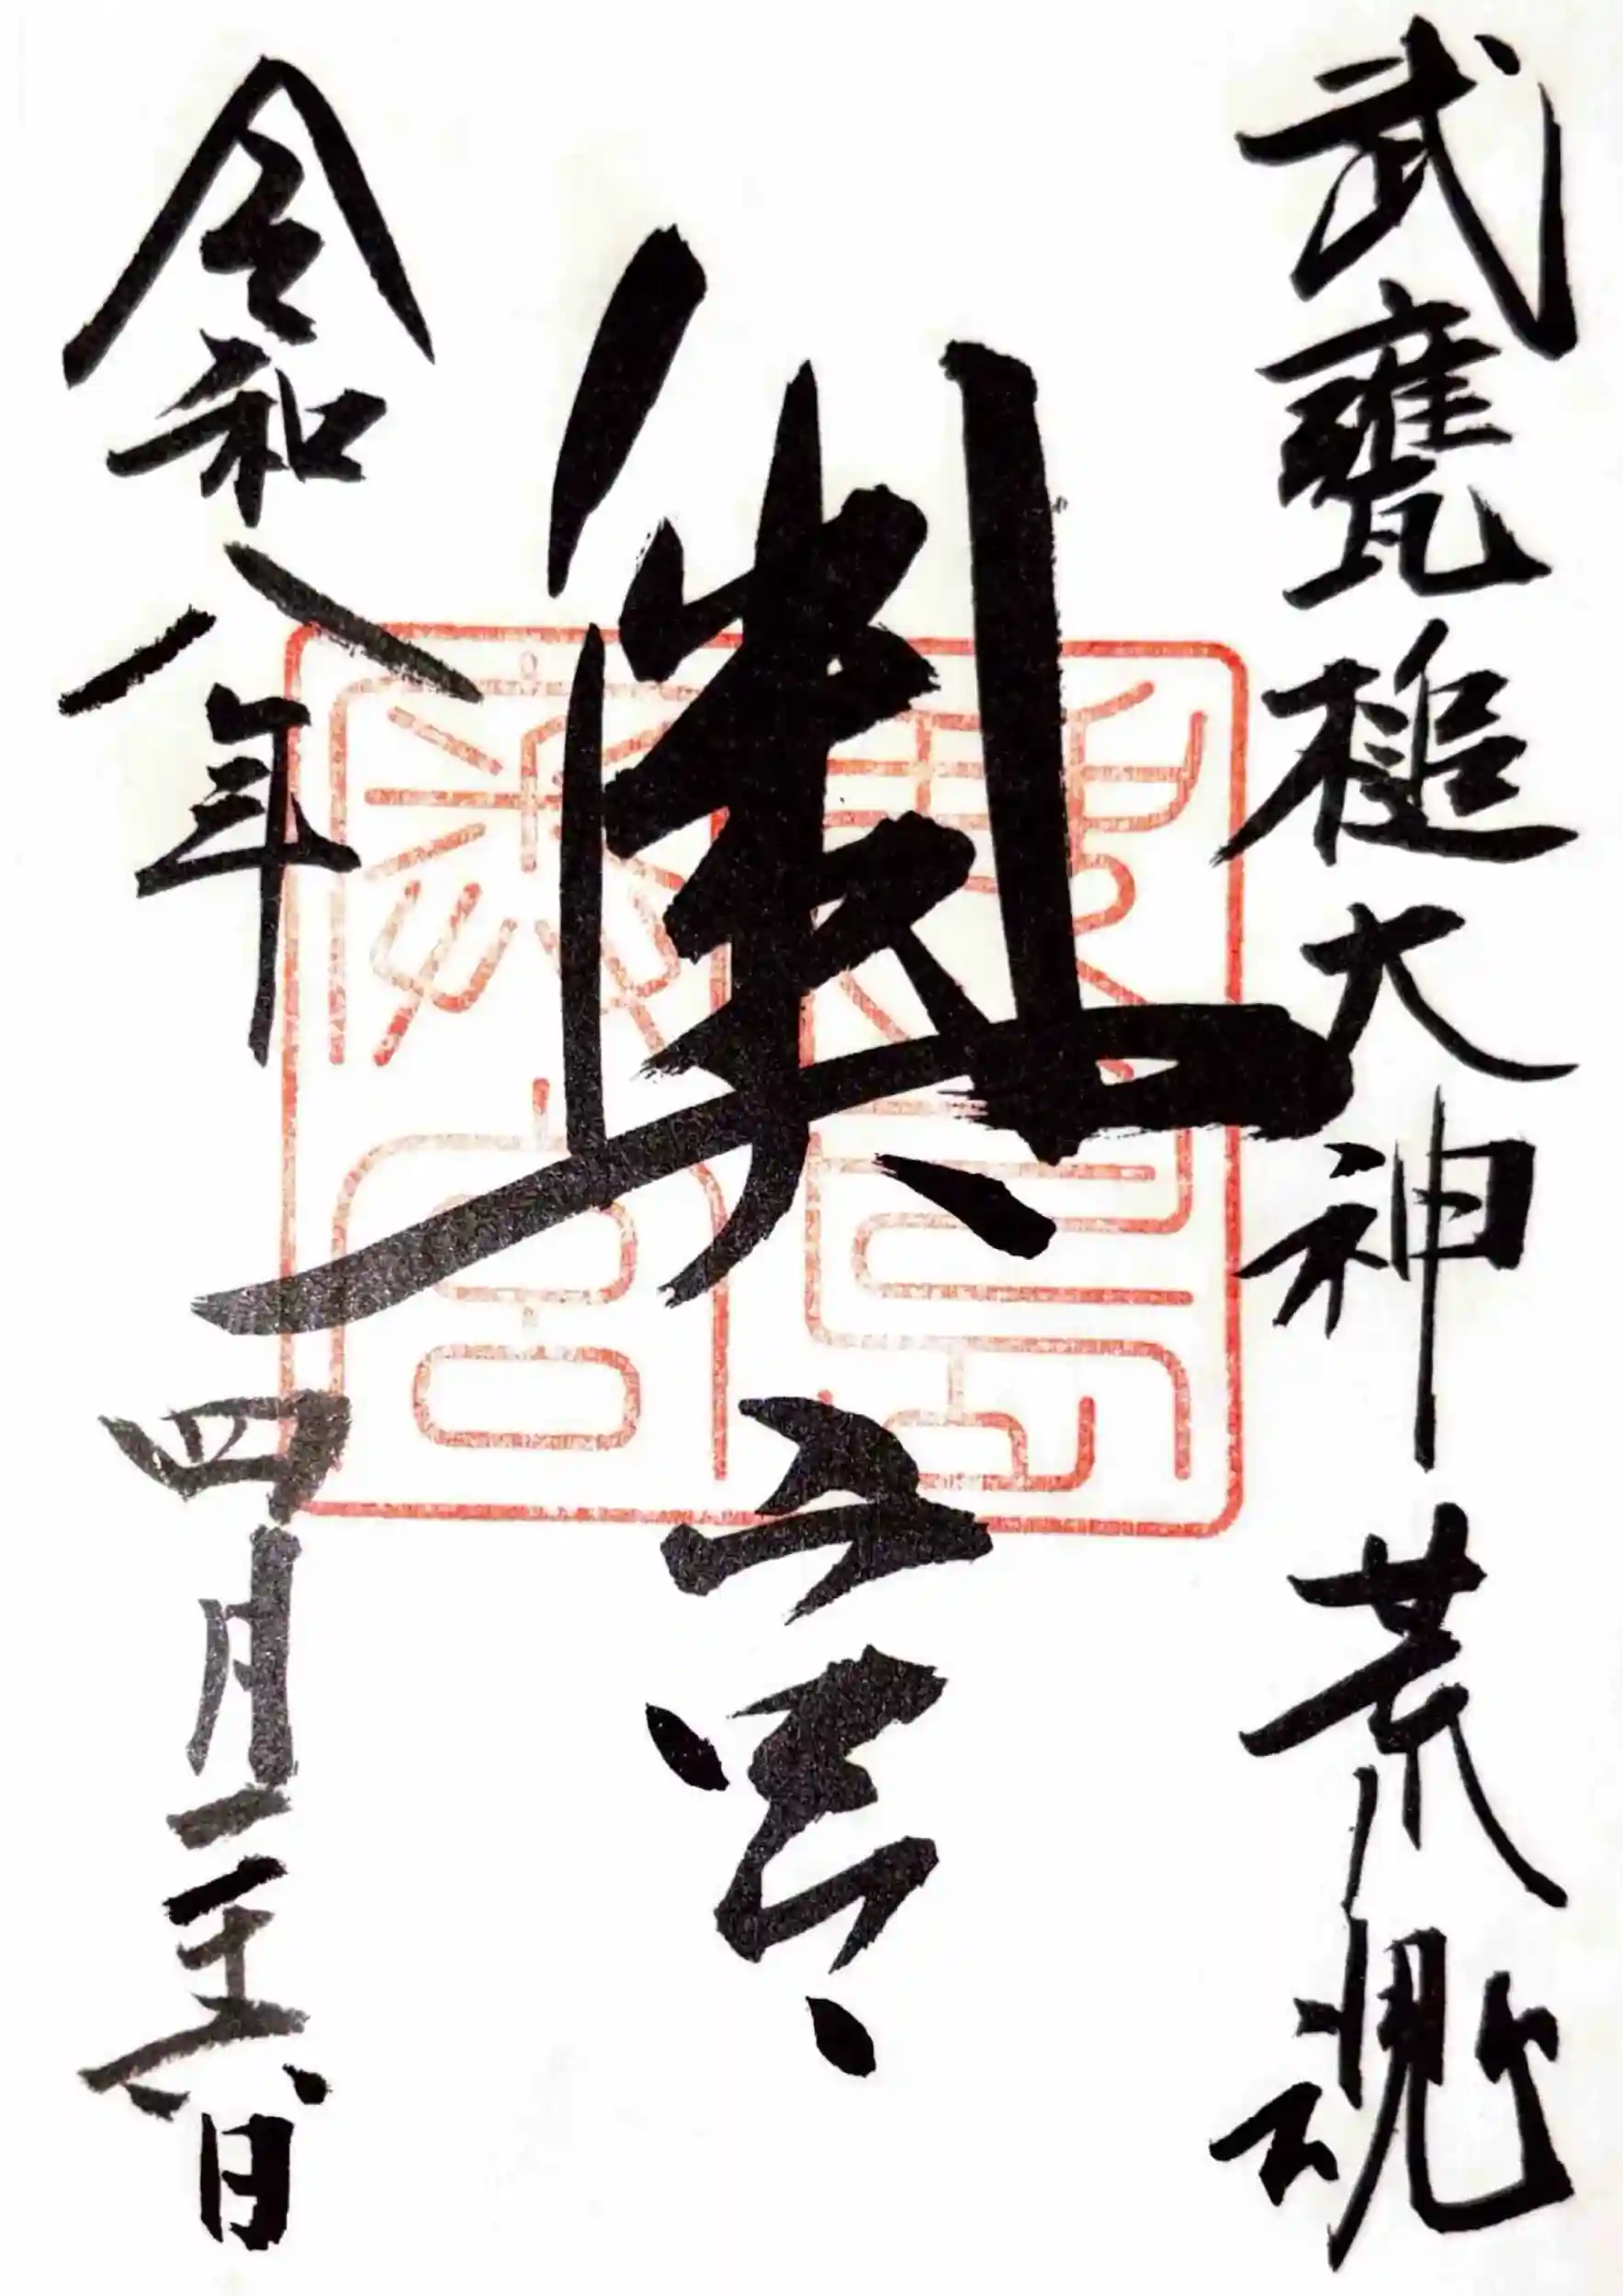 武甕槌大神 荒魂
奥宮
令和八年四月二十六日
鹿島
奥宮